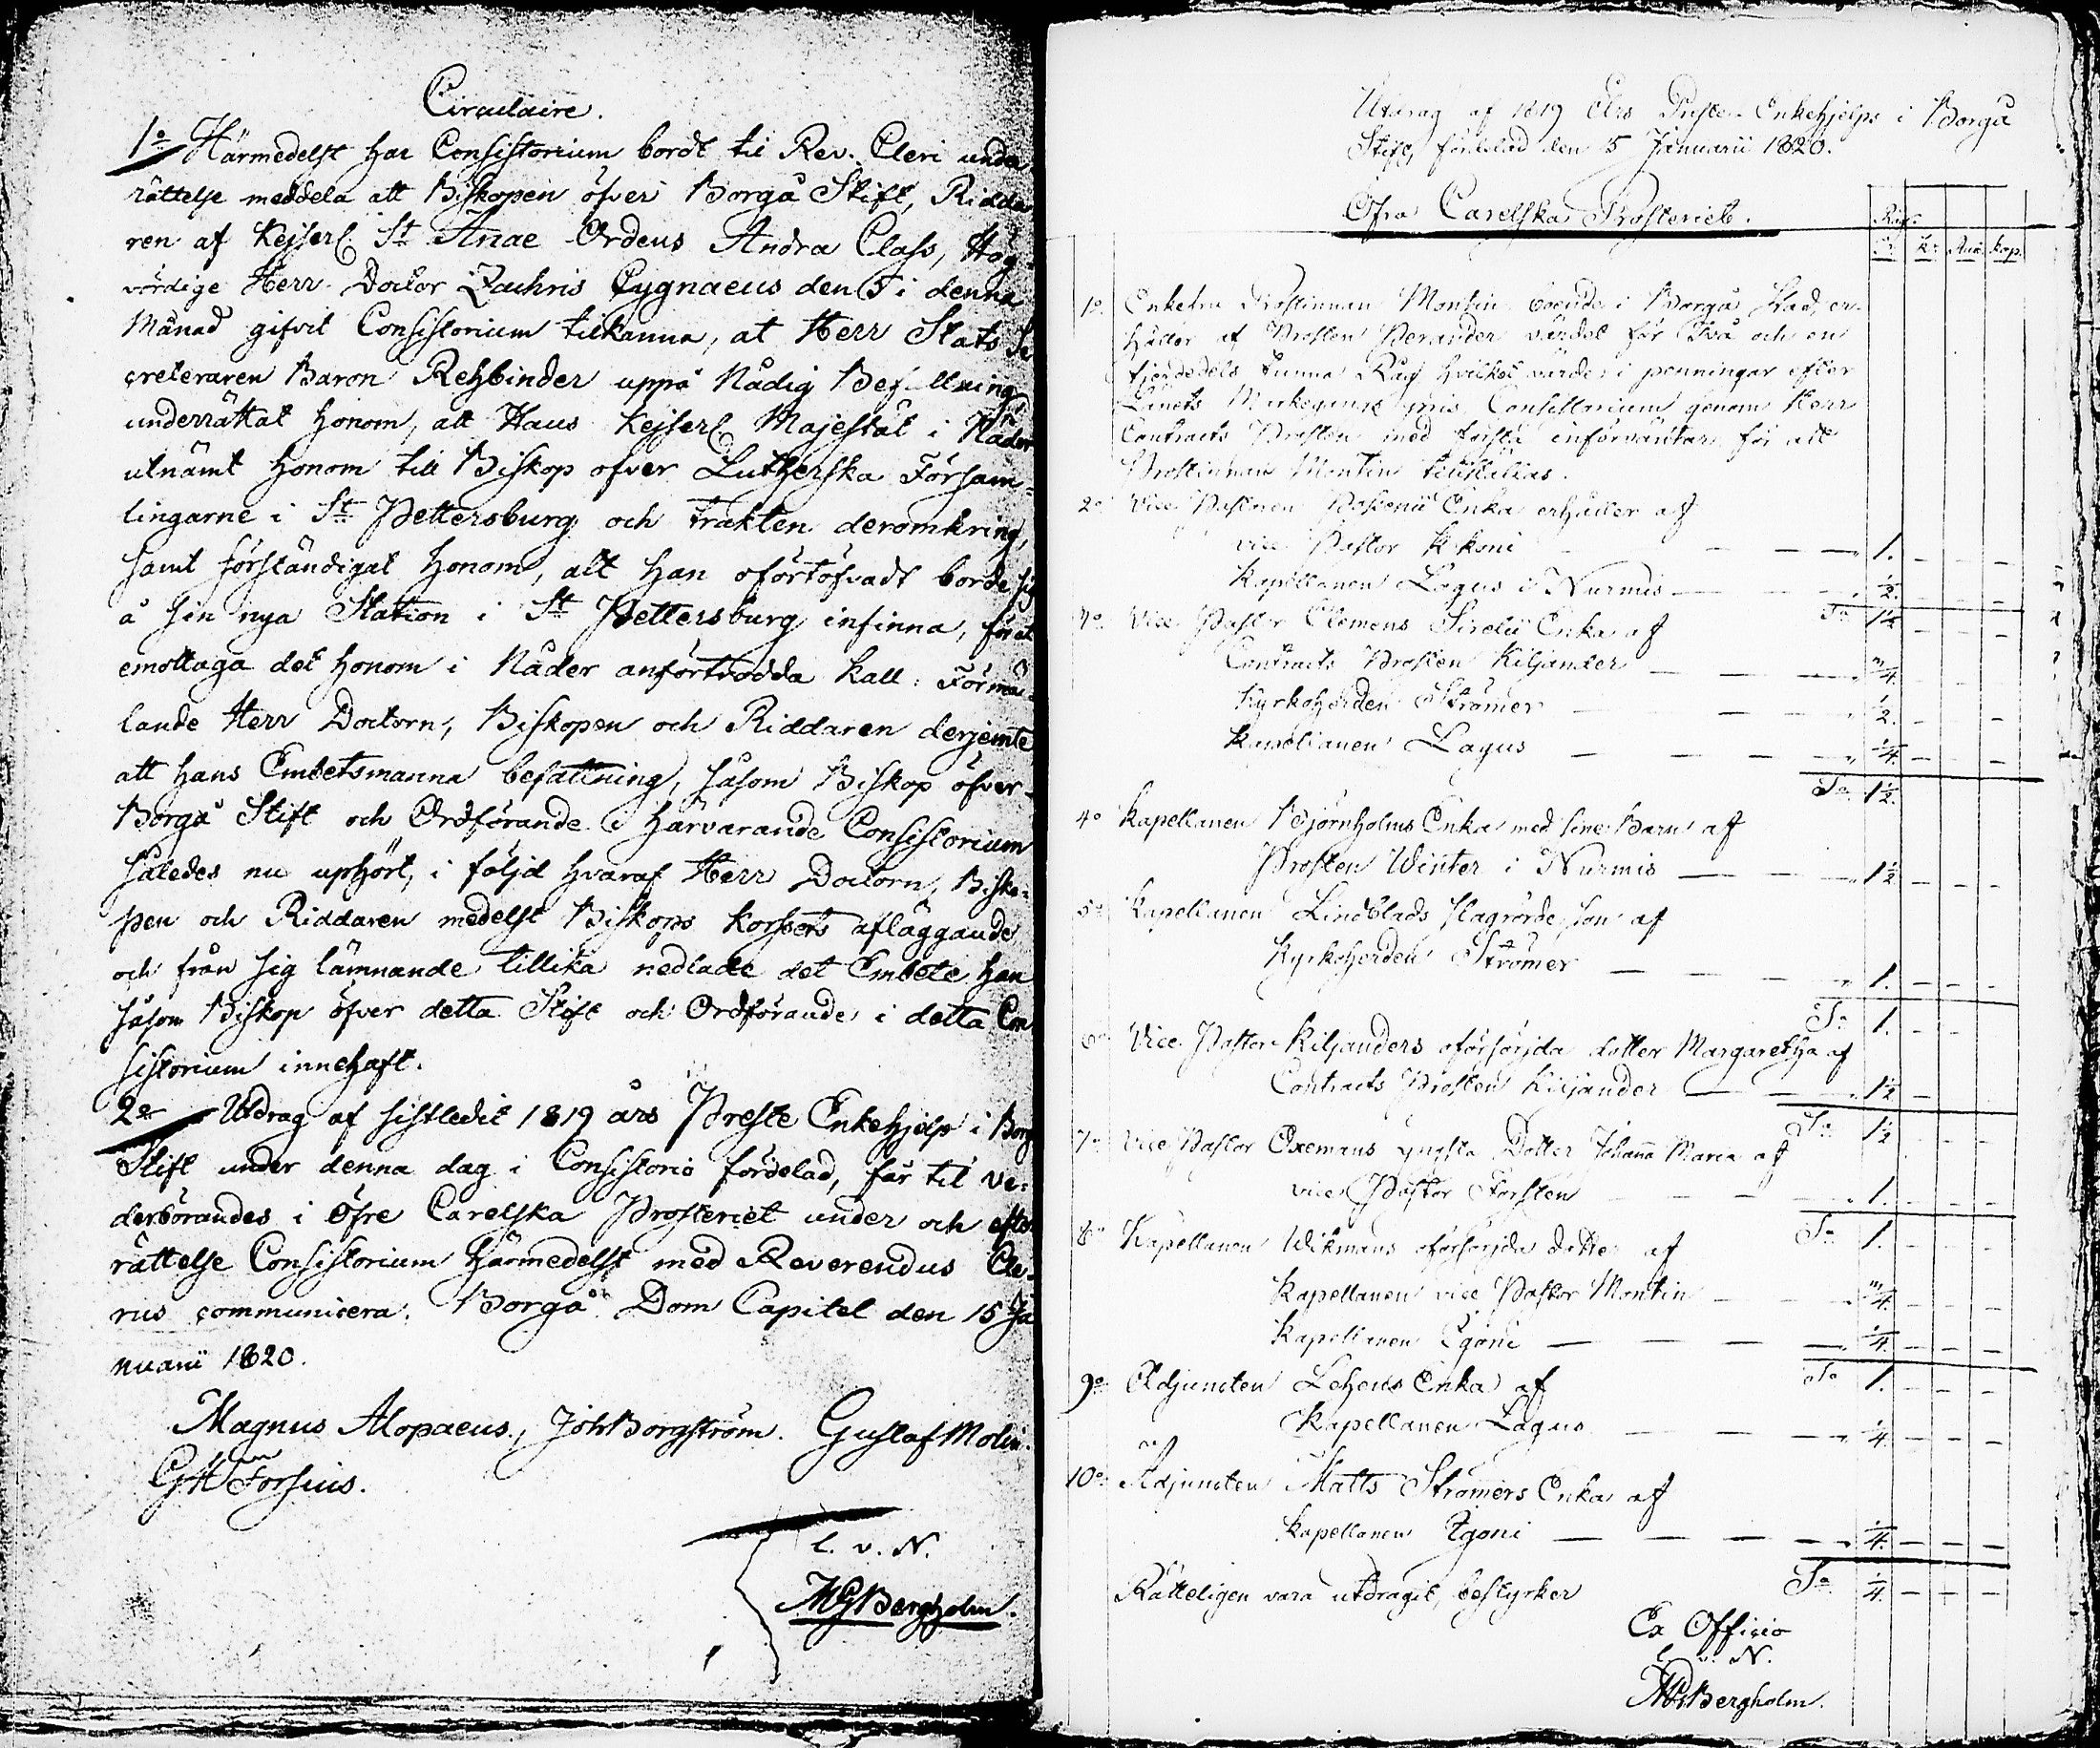 Circulaire.
1o Härmedelst har Consistorium bordt til Rev. Cleri unde
rättelse meddela att Biskopen öfver Borgå Stift, Ridda
ren af Kejserl. St Anae Ordens Andra Class, Hög
vördige Herr Doctor Zachris Cygnaeus den 5 i denna
Månad gifvit Consistorium tilkänna, at Herr Stats Se
creteraren Baron Rehbinder uppå Nådig Befallning
underrättat honom, att Hans Kejserl. Majestät i Nåder
utnämt honom till Biskop öfver Lutherska Försam=
lingarne i St Pettersburg och trakten deromkring,
samt förständigat honom, att han oförtöfvadt borde sig
å sin nya Station i St Pettersburg infinna, för at
emottaga det honom i Nåder anförtrodda kall: Förmä=
lande Herr Doctorn, Biskopen och Riddaren derjemte
att hans Embetsmanna befattning, såsom Biskop öfver
Borgå Stift och Ordförande i härvarande Consistorium
således nu uphört, i följd hvaraf Herr Doctorn, Bisko=
pen och Riddaren medelst Biskops korsets afläggande
och från sig lämnande tillika nedlade det Embete han
såsom Biskop öfver detta Stift och Ordförande i detta Con
sistorium innehaft.
2o Utdrag af sistledit 1819 års Preste Enkehjelp i Borg
Stift under denna dag i Consistorio fördelad, får til ve=
derbörandes i Öfre Carelska Prosteriet under och efter
rättelse Consistorium härmedelst med Reverendus Cle=
rus communicera. Borgå Dom Capitel den 15 Ja
nuarii 1820.
Magnus Alopaeus., Joh Borgström. Gustaf Molin.
GH Forsius.
l. v. N.
MGBergholm.
Utdrag af 1819 Års Preste Enkehjelps i Borgå
Stift, fördelad den 5 Januarii 1820.
Öfra Carelska Prosteriet.
Råg.
Tr. Kr. Rub. Kop.
1o Enkefru Prostinnan Montin boende i Borgå Stad, er=
håller af Prosten Perander värdet för Två och en
fjerdedels tunna Råg hvilket värde i penningar efter
Länets Markegångs pris Consistorium genom Herr
Contracts Prosten med första införväntar, för att
Prostinnan Montin tillställas.
2o Vice Pastoren Enka erhåller af
vice Pastor – – – 1. – – –
Kapellanen Lagus i Nurmis – – – ½. – – –
Sa 1½ – – –
3o Vice Pastor Clemens Sirelii Enka af
Contracts Prosten Kiljander – – – ¾. – – –
Kyrkoherden Strömer – – – ½. – –
Kapellanen Lagus – – – ¼. – – –
Sa 1½.
4o Kapellanen Björnholms Enka med sine Barn af
Prosten Winter i Nurmis – – – 1½ – – –
5o Kapellanen Lindblads slagrörde son af
Kyrkoherden Strömer – – – 1. – – –
Sa 1. – –
6o Vice Pastor Kiljanders oförsörjda dotter Margaretha af
Contracts Prosten Kiljander – – 1½ –
Sa 1½ – –
7o Vice Pastor Oxemans yngsta Dotter Johanna Maria af
vice Pastor Forstén – – – 1. – – –
Sa 1. – – –
8o Kapellanen Wikmans oförsörjda dotter af
Kapellanen vice Pastor Montin – – ¾. – – –
Kapellanen Egoni – – – ¼. – – –
Sa 1. – – –
9o Adjuncten Enka af
Kapellanen Lagus – – – ¼. – – –
10o Adjuncten Matts Strömers Enka af
Kapellanen Egoni – – – ¼. – – –
Sa ¼. – – –
Rätteligen vara utdragit, bestyrker
Ex Officio
l. v. N.
MGBergholm.